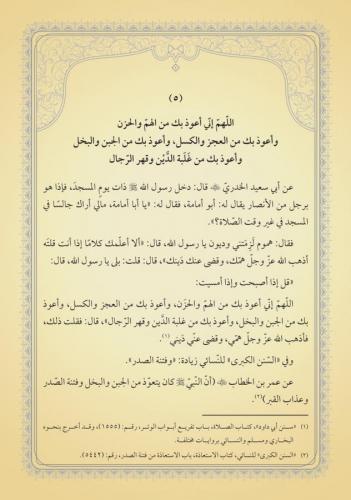 (٥)
اللّهمّ إنّي أعوذ بك من الهمّ والحزن
وأعوذ بك من العجز والكسل، وأعوذ بك من الجبن والبخل
وأعوذ بك من غَلَبة الدَّيْن وقهر الرّجال
عن أبي سعيد الخدريّ ﵁ قال: دخل رسول الله ﷺ ذات يوم المسجدَ، فإذا هو
برجل من الأنصار يقال له: أبو أمامة، فقال له: «يا أبا أمامة، مالي أراك جالسًا في
المسجد في غير وقت الصّلاة؟».
فقال: هموم لَزِمَتني وديون يا رسول الله، قال: «ألا أعلّمك كلامًا إذا أنت قلتَه
أذهب الله عزّ وجلّ همّك، وقضى عنك دَينك»، قال: قلت: بلى يا رسول الله، قال:
«قل إذا أصبحت وإذا أمسيت:
اللّهمّ إنّي أعوذ بك من الهمّ والحَزَن، وأعوذ بك من العجز والكسل، وأعوذ
بك من الجبن والبخل، وأعوذ بك من غلبة الدَّين وقهر الرّجال»، قال: فقلت ذلك،
فأذهب الله عزّ وجلّ همّي، وقضى عنّي دَيني(١).
وفي «السّنن الكبرى» للنّسائي زيادة: «وفتنة الصدر».
عن عمر بن الخطاب ﵁ (أنّ النّبيّ ﷺ كان يتعوّذ من الجبن والبخل وفتنة الصّدر
وعذاب القبر)(٢).
(١) «سنن أبي داود»، كتاب الصلاة، باب تفريع أبواب الوتر، رقم: (١٥٥٥)، وقد أخرج بنحوه
البخاري ومسلم والنسائي بروايات مختلفة.
(٢) «السنن الكبرى» للنسائي، كتاب الاستعاذة، باب الاستعاذة من فتنة الصدر، رقم: (٥٤٤٢).